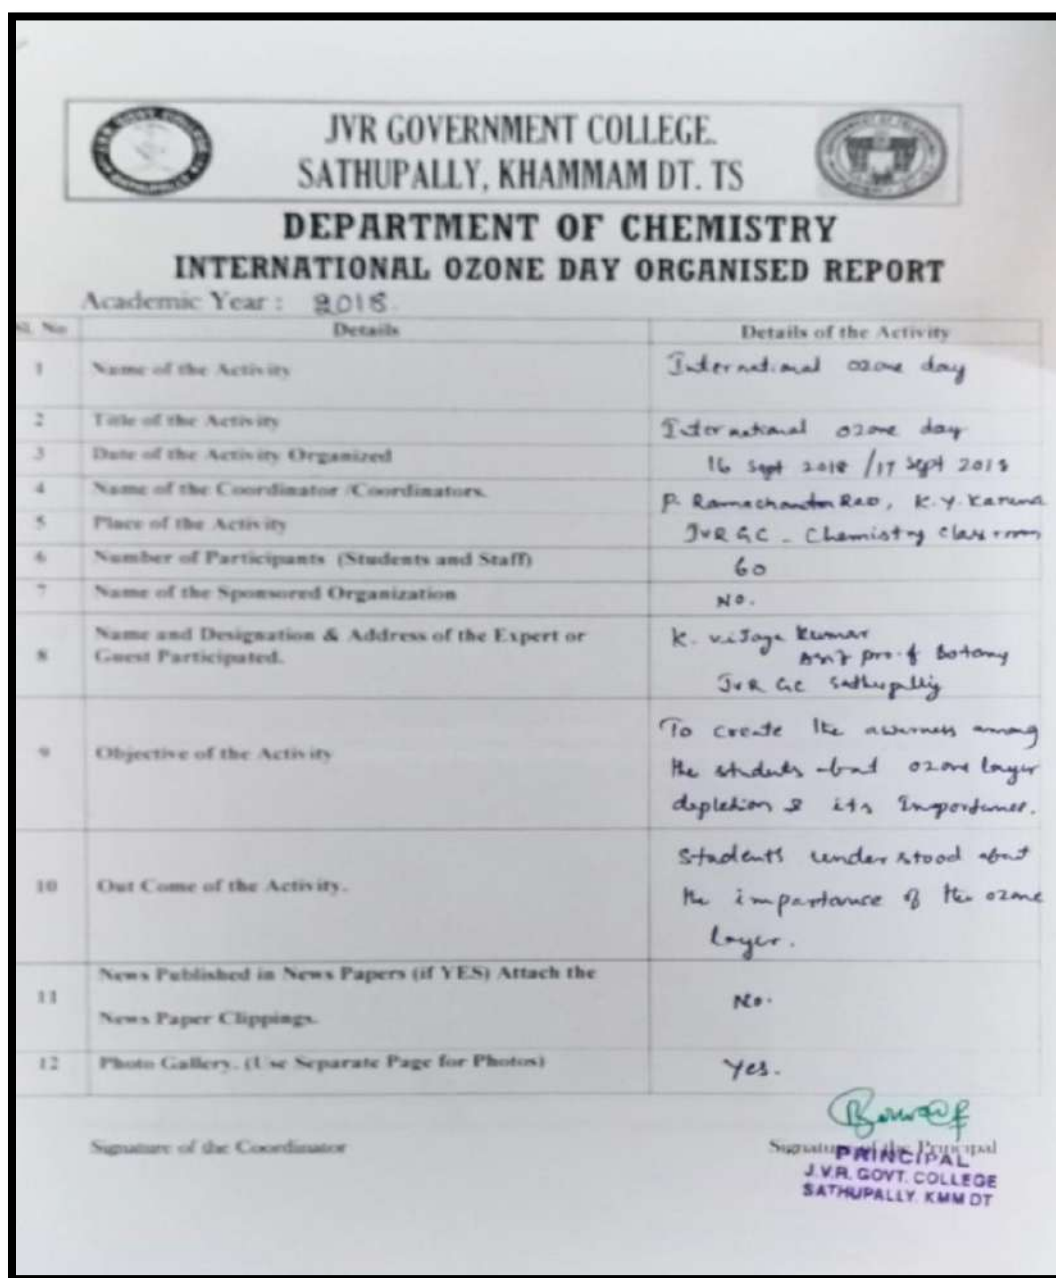 JVR GOVERNMENT COLLEGE.
SATHUPALLY, KHAMMAM DT. TS
DEPARTMENT OF CHEMISTRY
INTERNATIONAL OZONE DAY ORGANISED REPORT
Academic Year : 2018.
Sl. No Details Details of the Activity
1 Name of the Activity International ozone day
2 Title of the Activity International ozone day
3 Date of the Activity Organized 16 Sept 2018 / 17 Sept 2018
4 Name of the Coordinator /Coordinators. P. Ramachandra Rao, K.Y. Karuna
5 Place of the Activity JVR GC - Chemistry Classroom
6 Number of Participants (Students and Staff) 60
7 Name of the Sponsored Organization No.
8 Name and Designation & Address of the Expert or
Guest Participated.
K. Vijaya Kumar
Asst prof of Botany
JVR GC Sathupally
9 Objective of the Activity
To create the awarness among
the students about ozone layer
depletion & its Importance.
10 Out Come of the Activity.
Students understood about
the importance of the ozone
layer.
11 News Published in News Papers (if YES) Attach the
News Paper Clippings.
No.
12 Photo Gallery. (Use Separate Page for Photos) Yes.
Signature of the Coordinator Signature of the Principal
PRINCIPAL
J.V.R. GOVT. COLLEGE
SATHUPALLY. KMM DT